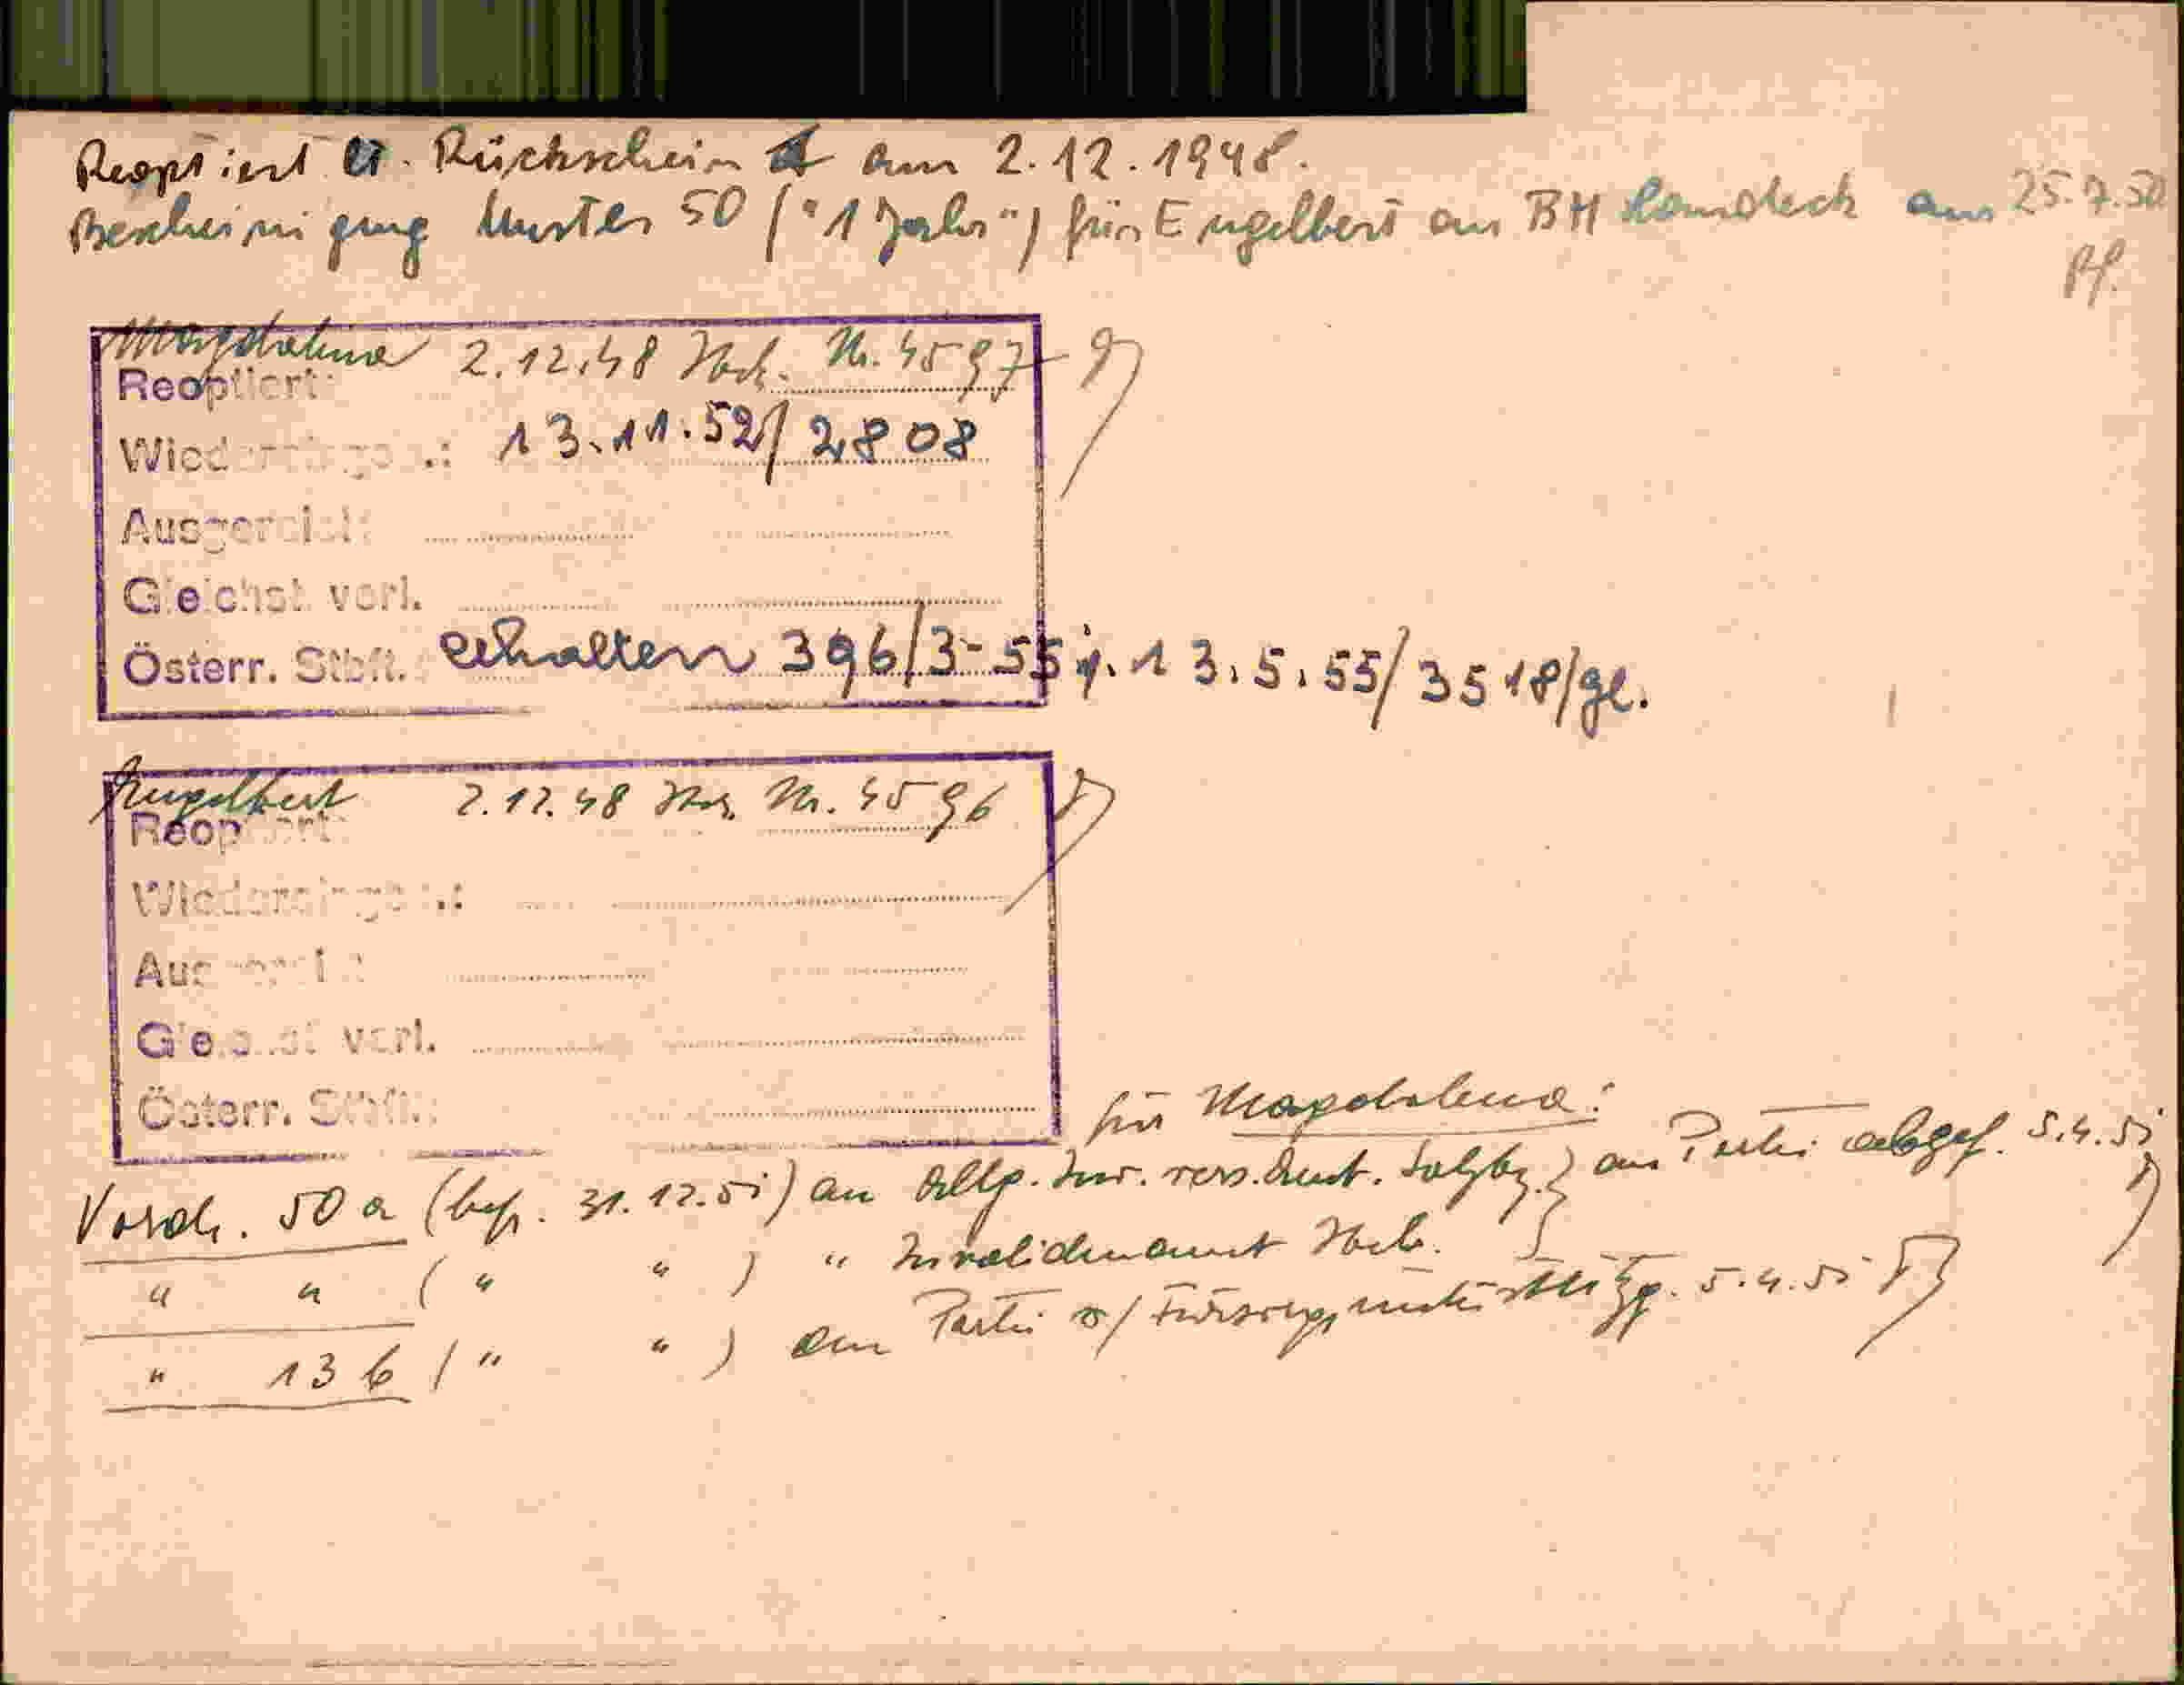 Reoptiert u. Rückschein am 2.12.1948.
Bescheinigung Muster 50 ("1 Jahr") für Engelbert an BH Landeck am 25.7.50
Pf.
Magdalena 2.12.48 Nr. 4597
Reoptiert:
Wiedereingeb.: 13.11.52/2808
Ausgereist:
Gleichst. verl.
Österr. Stbft.: erhalten 396/3-55 v. 13.5.55/3518/gl.
Engelbert 2.12.48 Nr. 4596
Reoptiert:
Wiedereingeb.:
Ausgereist:
Gleichst. verl.
Österr. Stbft.:
für Magdalena:
Vordr. 50 a (befr. 31.12.51) an Allg. Inv. vers. Anst. Salzbg. } an Partei abgef. 5.4.51
" " ( " " ) " Invalidenamt
" 13 b ( " " ) an Partei 5.4.51